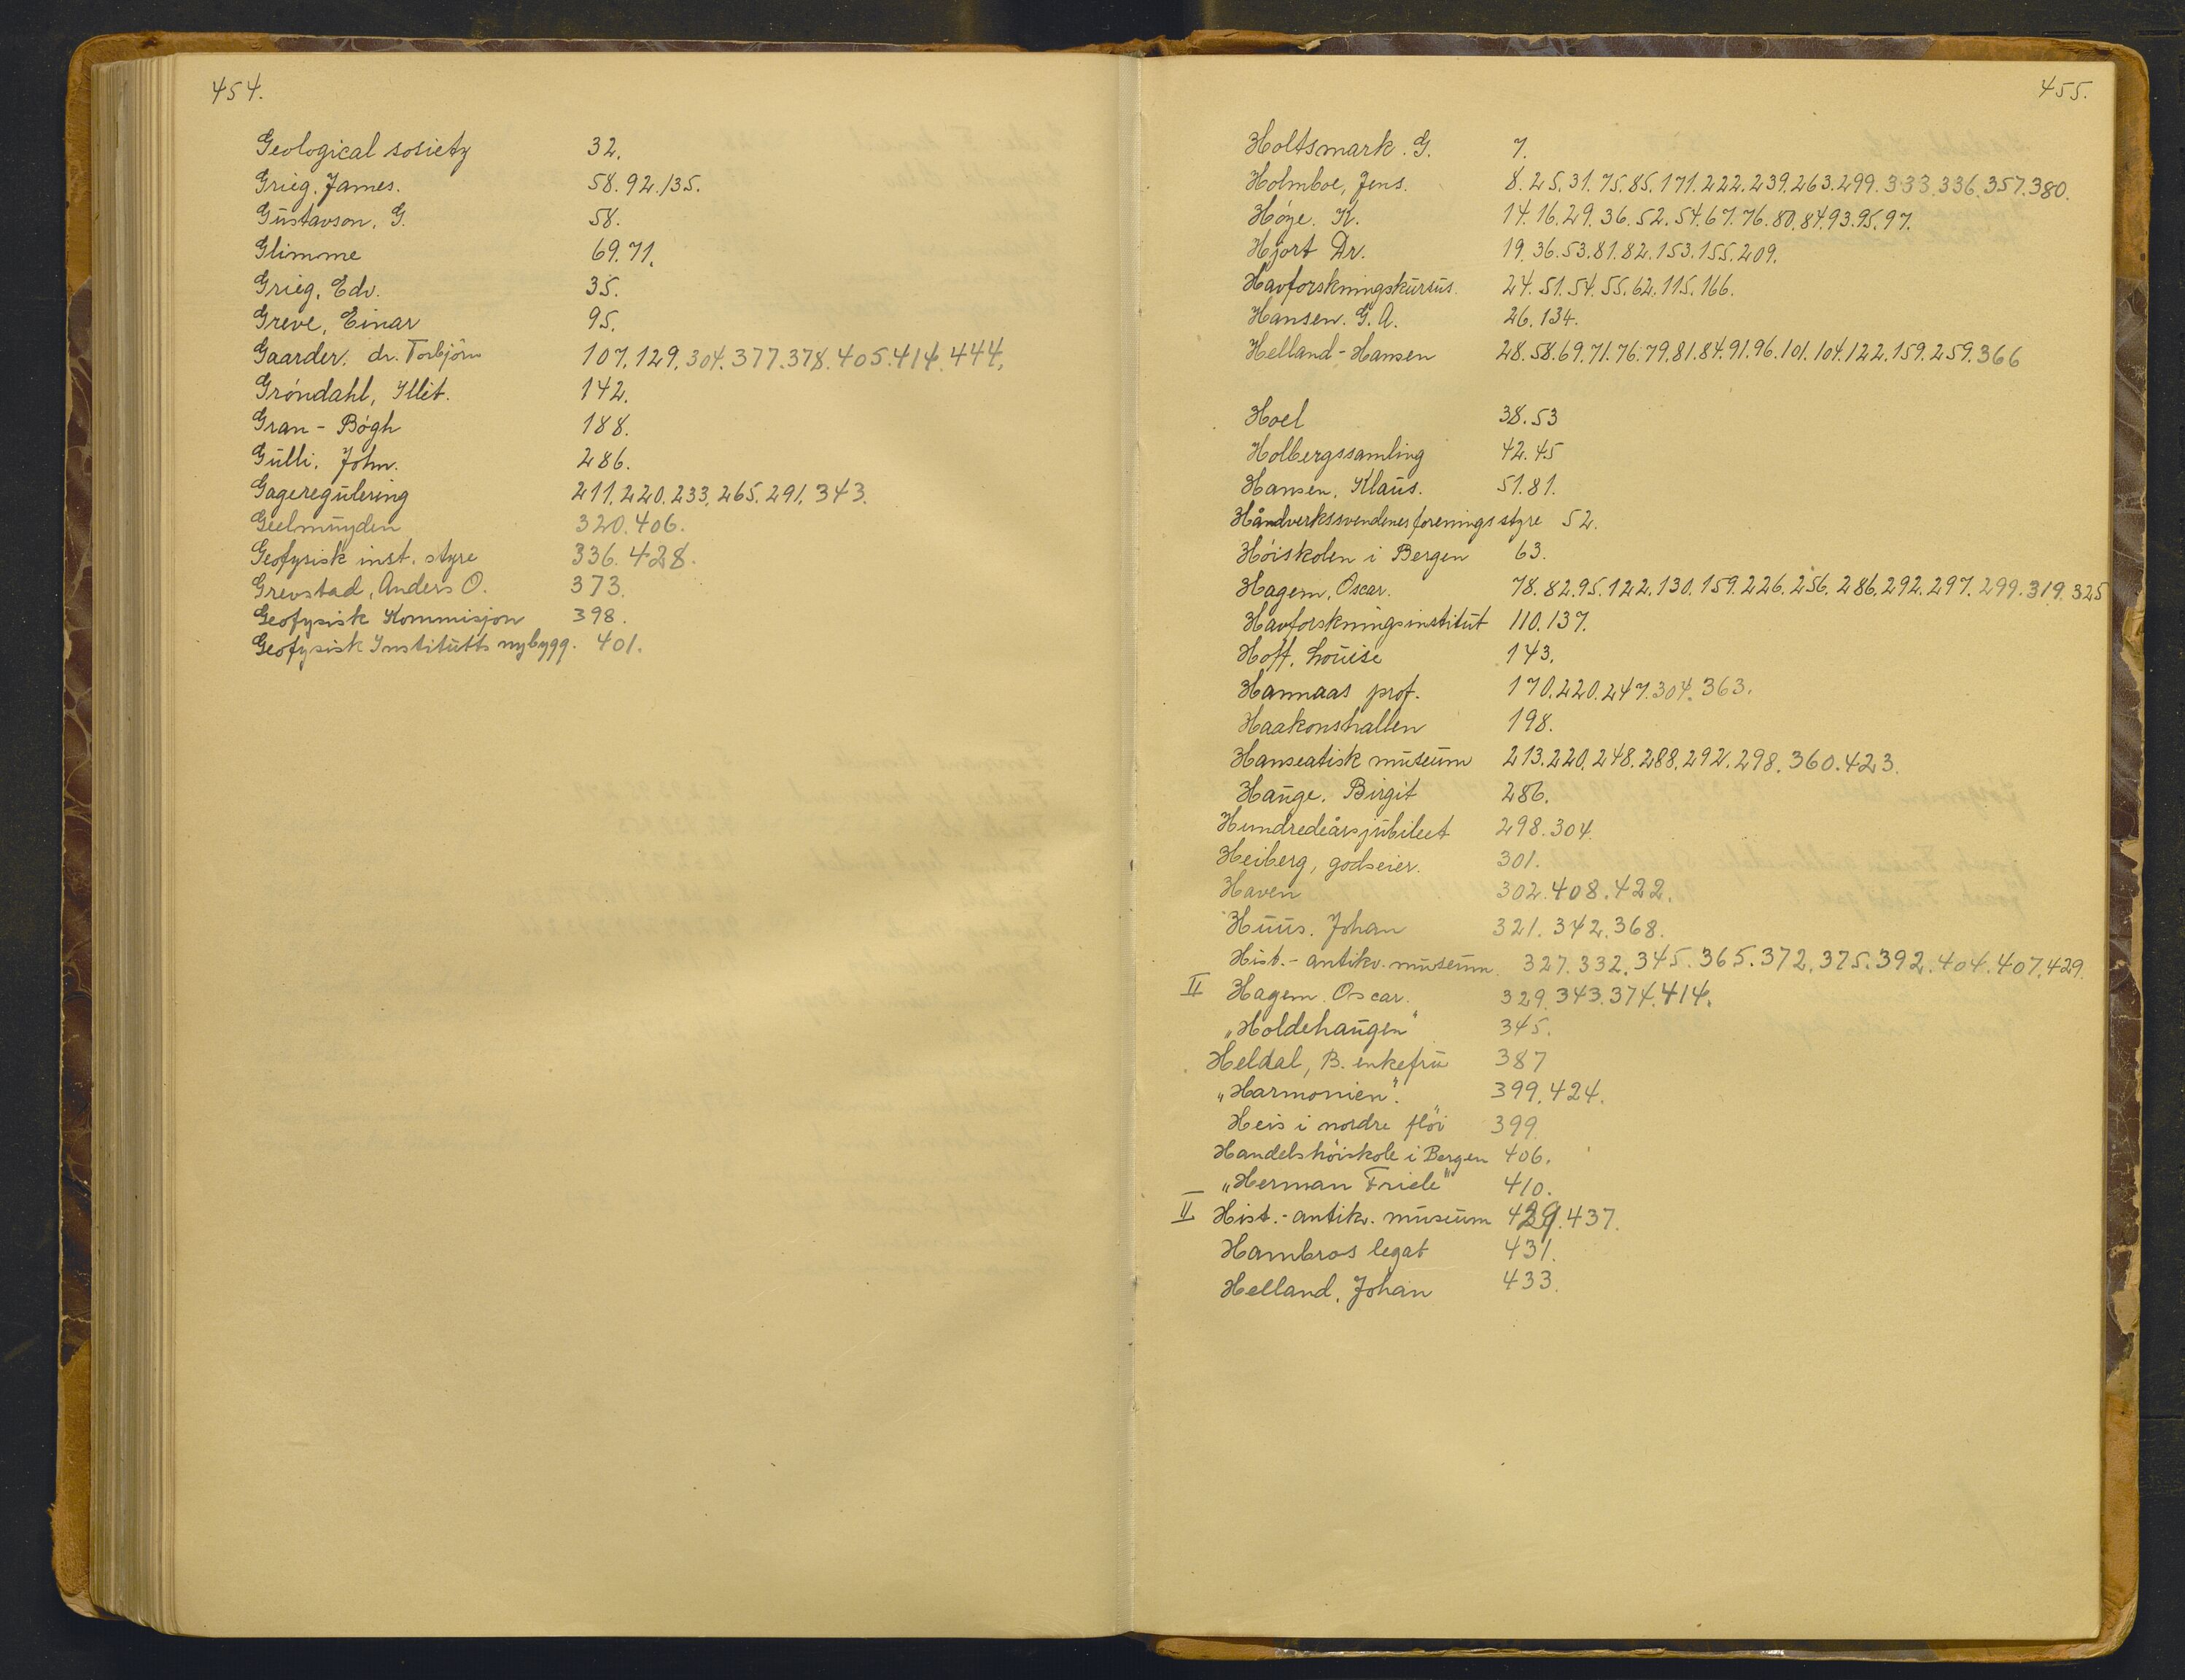 454.
Geological sosiety 32.
Grieg. James. 58.92.135.
Gustavson, G. 58.
Glimme 69.71.
Grieg, Edv. 35.
Greve, Einar 95.
Gaarder. dr. Torbjörn 107.129.304.377.378.405.414.444.
Gröndahl, Illit. 142.
Gran - Bögh 188.
Gulli. John. 286.
Gageregulering 211.220.233.265.291.343.
Geelmuyden 320.406.
Geofysisk inst. styre 336.428.
Grevstad, Anders O. 373.
Geofysisk Kommisjon 398.
Geofysisk Institutts nybygg. 401.
455.
Holtsmark. G. 7.
Holmboe, Jens. 8.25.31.75.85.171.222.239.263.299.333.336.357.380.
Höye. K. 14.16.29.36.52.54.67.76.80.84.93.95.97.
Hjort Dr. 19.36.53.81.82.153.155.209.
Havforskningskursus. 24.51.54.55.62.115.166.
Hansen. G. A. 26.134.
Helland-Hansen 28.58.69.71.76.79.81.84.91.96.101.104.122.159.259.366
Hoel 38.53
Holbergssamling 42.45
Hansen, Klaus. 51.81.
Håndverkssvendenes forenings styre 52.
Höiskolen i Bergen 63.
Hagem, Oscar. 78.82.95.122.130.159.226.256.286.292.297.299.319.325
Havforskningsinstitut 110.137.
Hoff, Louise 143.
Hannaas prof. 170.220.247.304.363.
Haakonshallen 198.
Hanseatisk museum 213.220.248.288.292.298.360.423.
Hauge. Birgit 286.
Hundredeårsjubileet 298.304.
Heiberg, godseier. 301.
Haven 302.408.422.
Huus. Johan 321.342.368.
Hist.- antikv. museum. 327.332.345.365.372.375.392.404.407.429.
II Hagem. Oscar. 329.343.374.414.
„Holdehaugen" 345.
Heldal, B. enkefru 387
„Harmonien". 399.424.
Heis i nordre flöi 399.
Handelshöiskole i Bergen 406.
„Herman Friele" 410.
II Hist.- antikv. museum 429.437.
Hambros legat 431.
Helland, Johan 433.